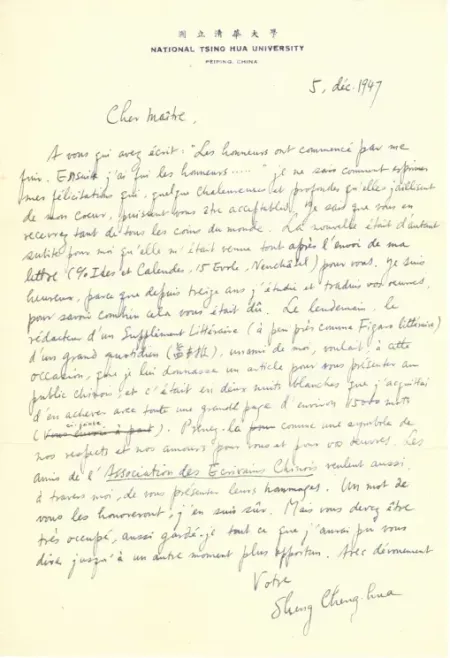 國立清華大學
NATIONAL TSING HUA UNIVERSITY
PEIPING, CHINA
5, déc. 1947
Cher Maître,
A vous qui avez écrit: "Les honneurs ont commencé par me
fuir. Ensuite j'ai fui les honneurs....." je ne sais comment exprimer
mes félicitations qui, quelque chaleureuses et profondes qu'elles jaillissent
de mon coeur, puissent vous être acceptables. Je sais que vous en
recevez tant de tous les coins du monde. La nouvelle était d'autant
subite pour moi qu'elle m'était venue tout après l'envoi de ma
lettre (℅ Ides et Calendes, 15 Evole, Neuchâtel) pour vous. Je suis
heureux, parce que depuis treize ans j'étudie et traduis vos oeuvres,
pour savoir combien cela vous était dû. Le lendemain, le
rédacteur d'un Supplément Littéraire (à peu près comme Figaro littéraire)
d'un grand quotidien, un ami de moi, voulait, à cette
occasion, que je lui donnasse un article pour vous présenter au
public chinois; et c'était en deux nuits blanches que j'acquittai
d'en achever avec toute une grande page d'environ 15000 mots
(ci-joint). Prenez-la comme une symbole de
nos respects et nos amours pour vous et pour vos oeuvres. Les
amis de l'Association des Ecrivains Chinois veulent aussi,
à travers moi, de vous présenter leurs hommages. Un mot de
vous les honoreront, j'en suis sûr. Mais vous devez être
très occupé, aussi gardé-je tout ce que j'aurai pu vous
dire, jusqu'à un autre moment plus opportun. Avec dévouement
Votre
Sheng Cheng-hua